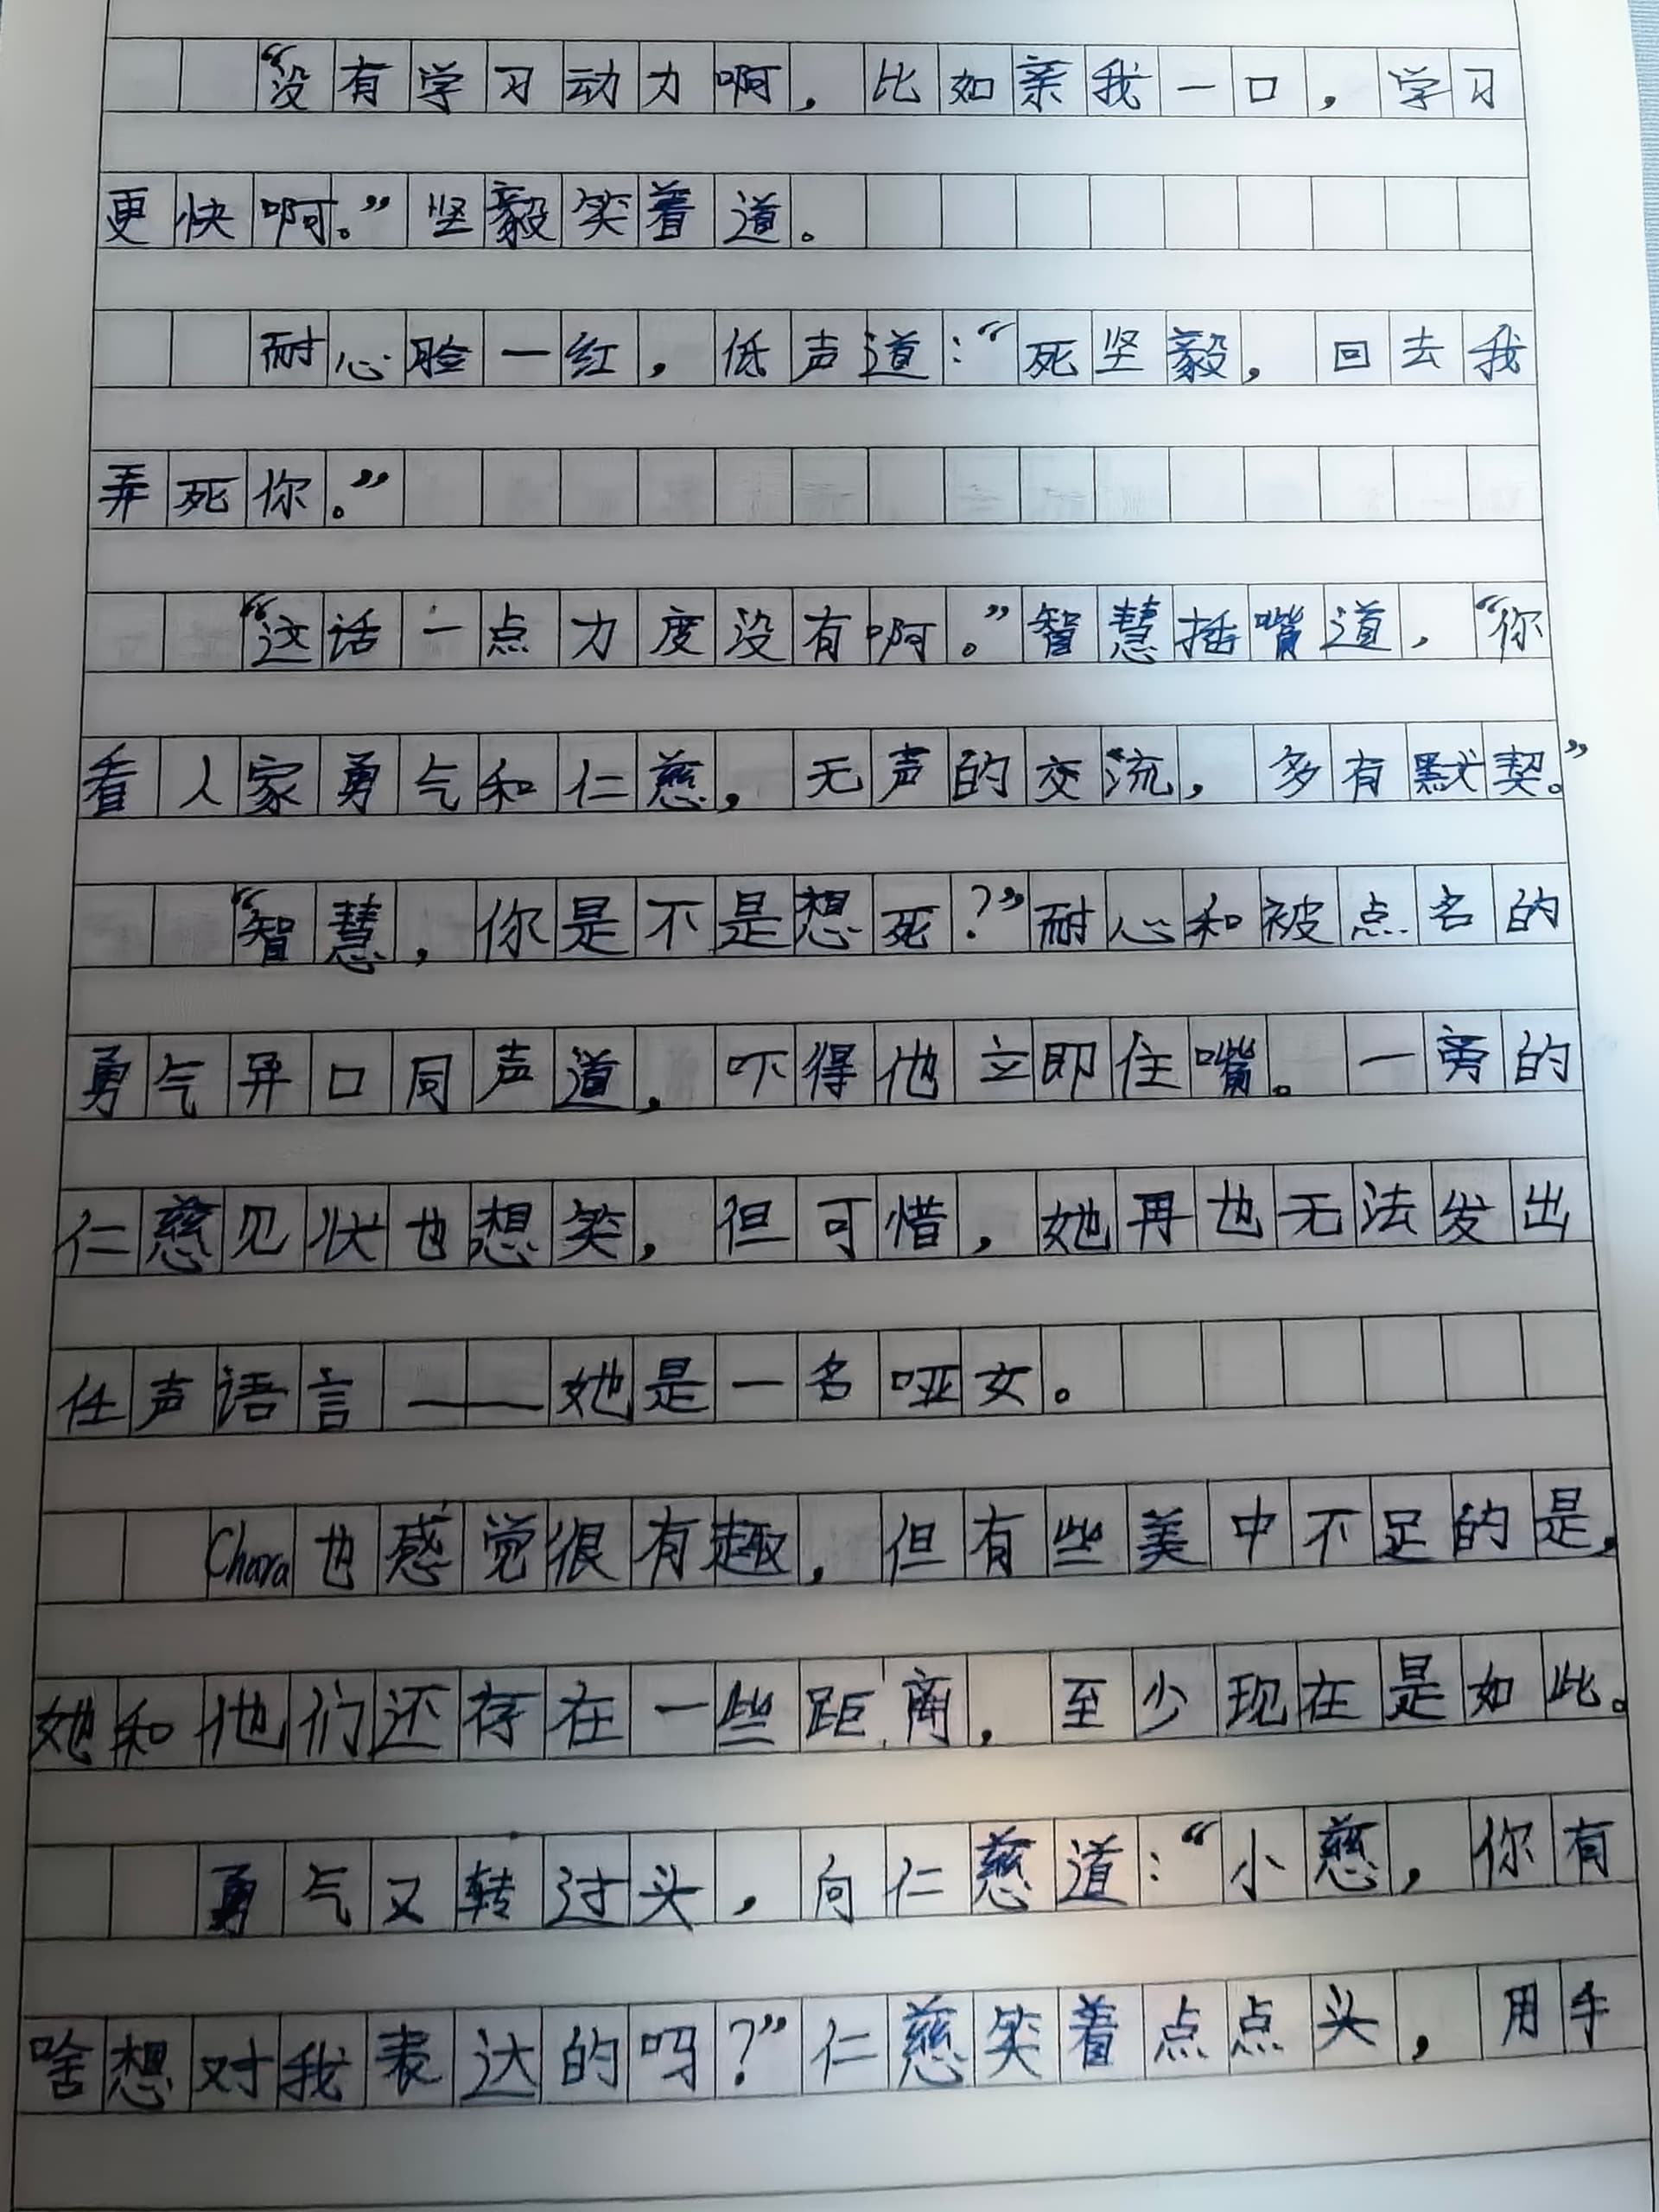 “没有学习动力啊，比如亲我一口，学习
更快啊。”坚毅笑着道。
耐心脸一红，低声道：“死坚毅，回去我
弄死你。”
“这话一点力度没有啊。”智慧插嘴道，“你
看人家勇气和仁慈，无声的交流，多有默契。”
“智慧，你是不是想死？”耐心和被点名的
勇气异口同声道，吓得他立即住嘴。一旁的
仁慈见状也想笑，但可惜，她再也无法发出
任声语言——她是一名哑女。
Chara也感觉很有趣，但有些美中不足的是，
她和他们还存在一些距离，至少现在是如此。
勇气又转过头，向仁慈道：“小慈，你有
啥想对我表达的吗？”仁慈笑着点点头，用手